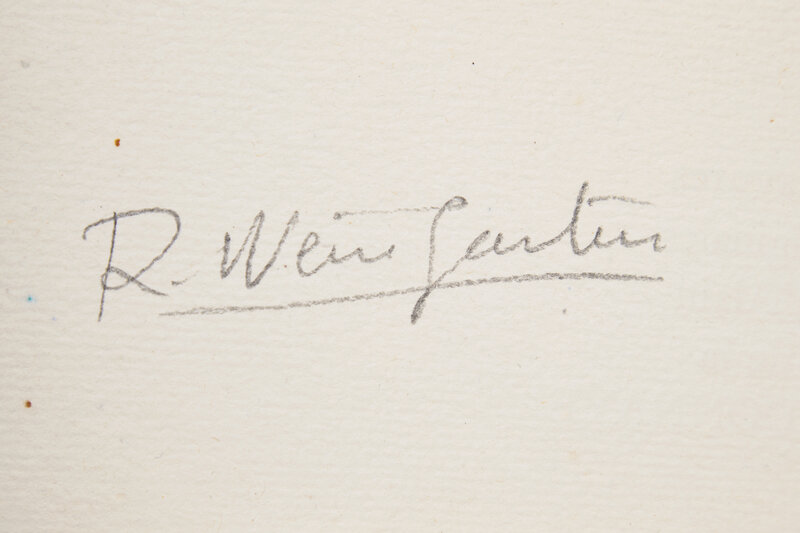 R. Weingarten